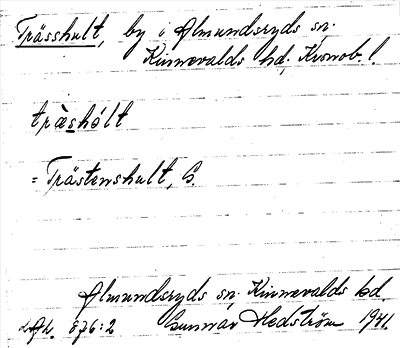 Trässhult, by i Almundsryds sn.
Kinnevalds hd; Kronob. l.
träshólt
= Trästenshult, S.
Almundsryds sn; Kinnevalds hd.
876:2 Gunnar Hedström 1941.